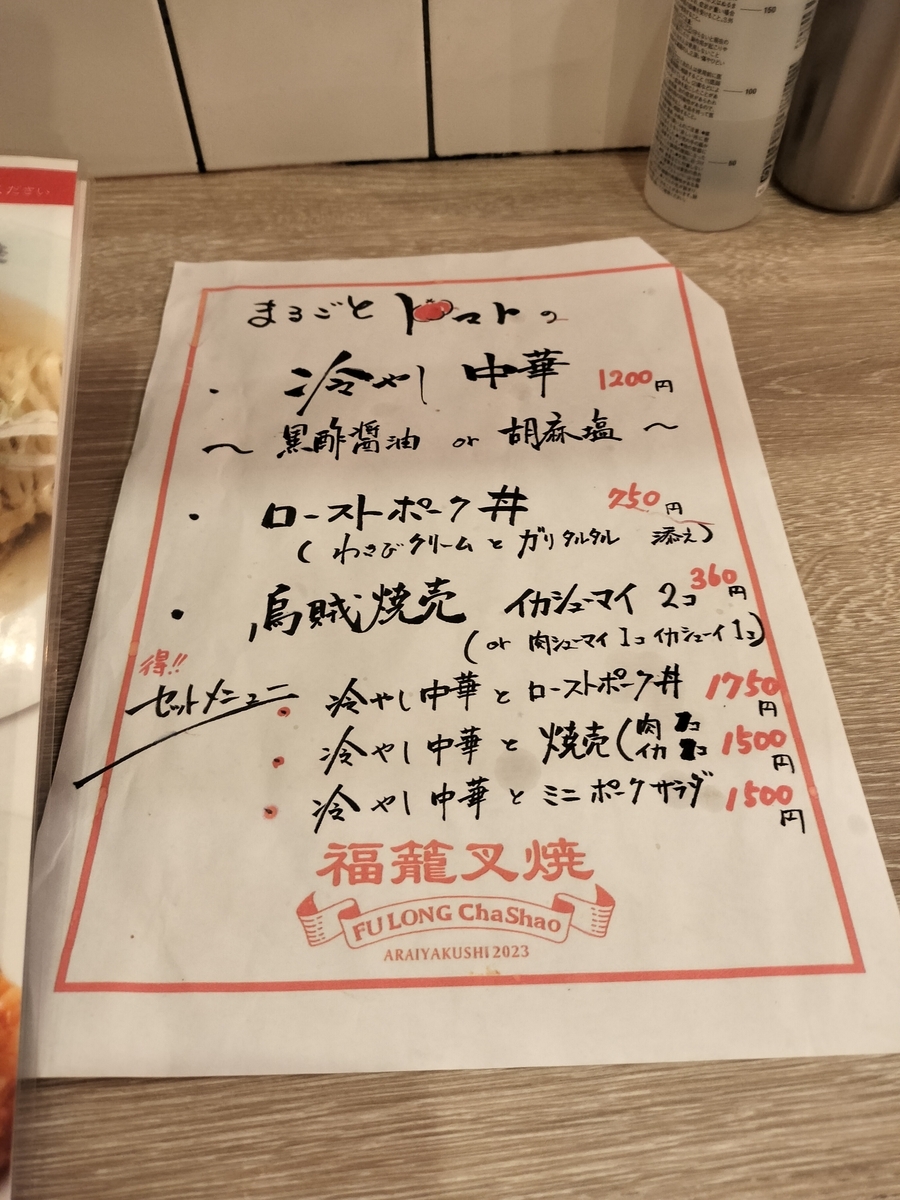 ください
まるごとトマトの
・冷やし中華 1200円
～黒酢醤油 or 胡麻塩～
・ローストポーク丼 750円
(わさびクリームとガリタルタル 添え)
・烏賊焼売 イカシューマイ 2コ 360円
(or 肉シューマイ1コ イカシューイ1コ)
得!!
セットメニュー
・冷やし中華とローストポーク丼 1750円
・冷やし中華と焼売(肉 コ イカ コ 1500円
・冷やし中華とミニポークサラダ 1500円
福籠叉焼
FU LONG ChaShao
ARAIYAKUSHI 2023
150
100
50